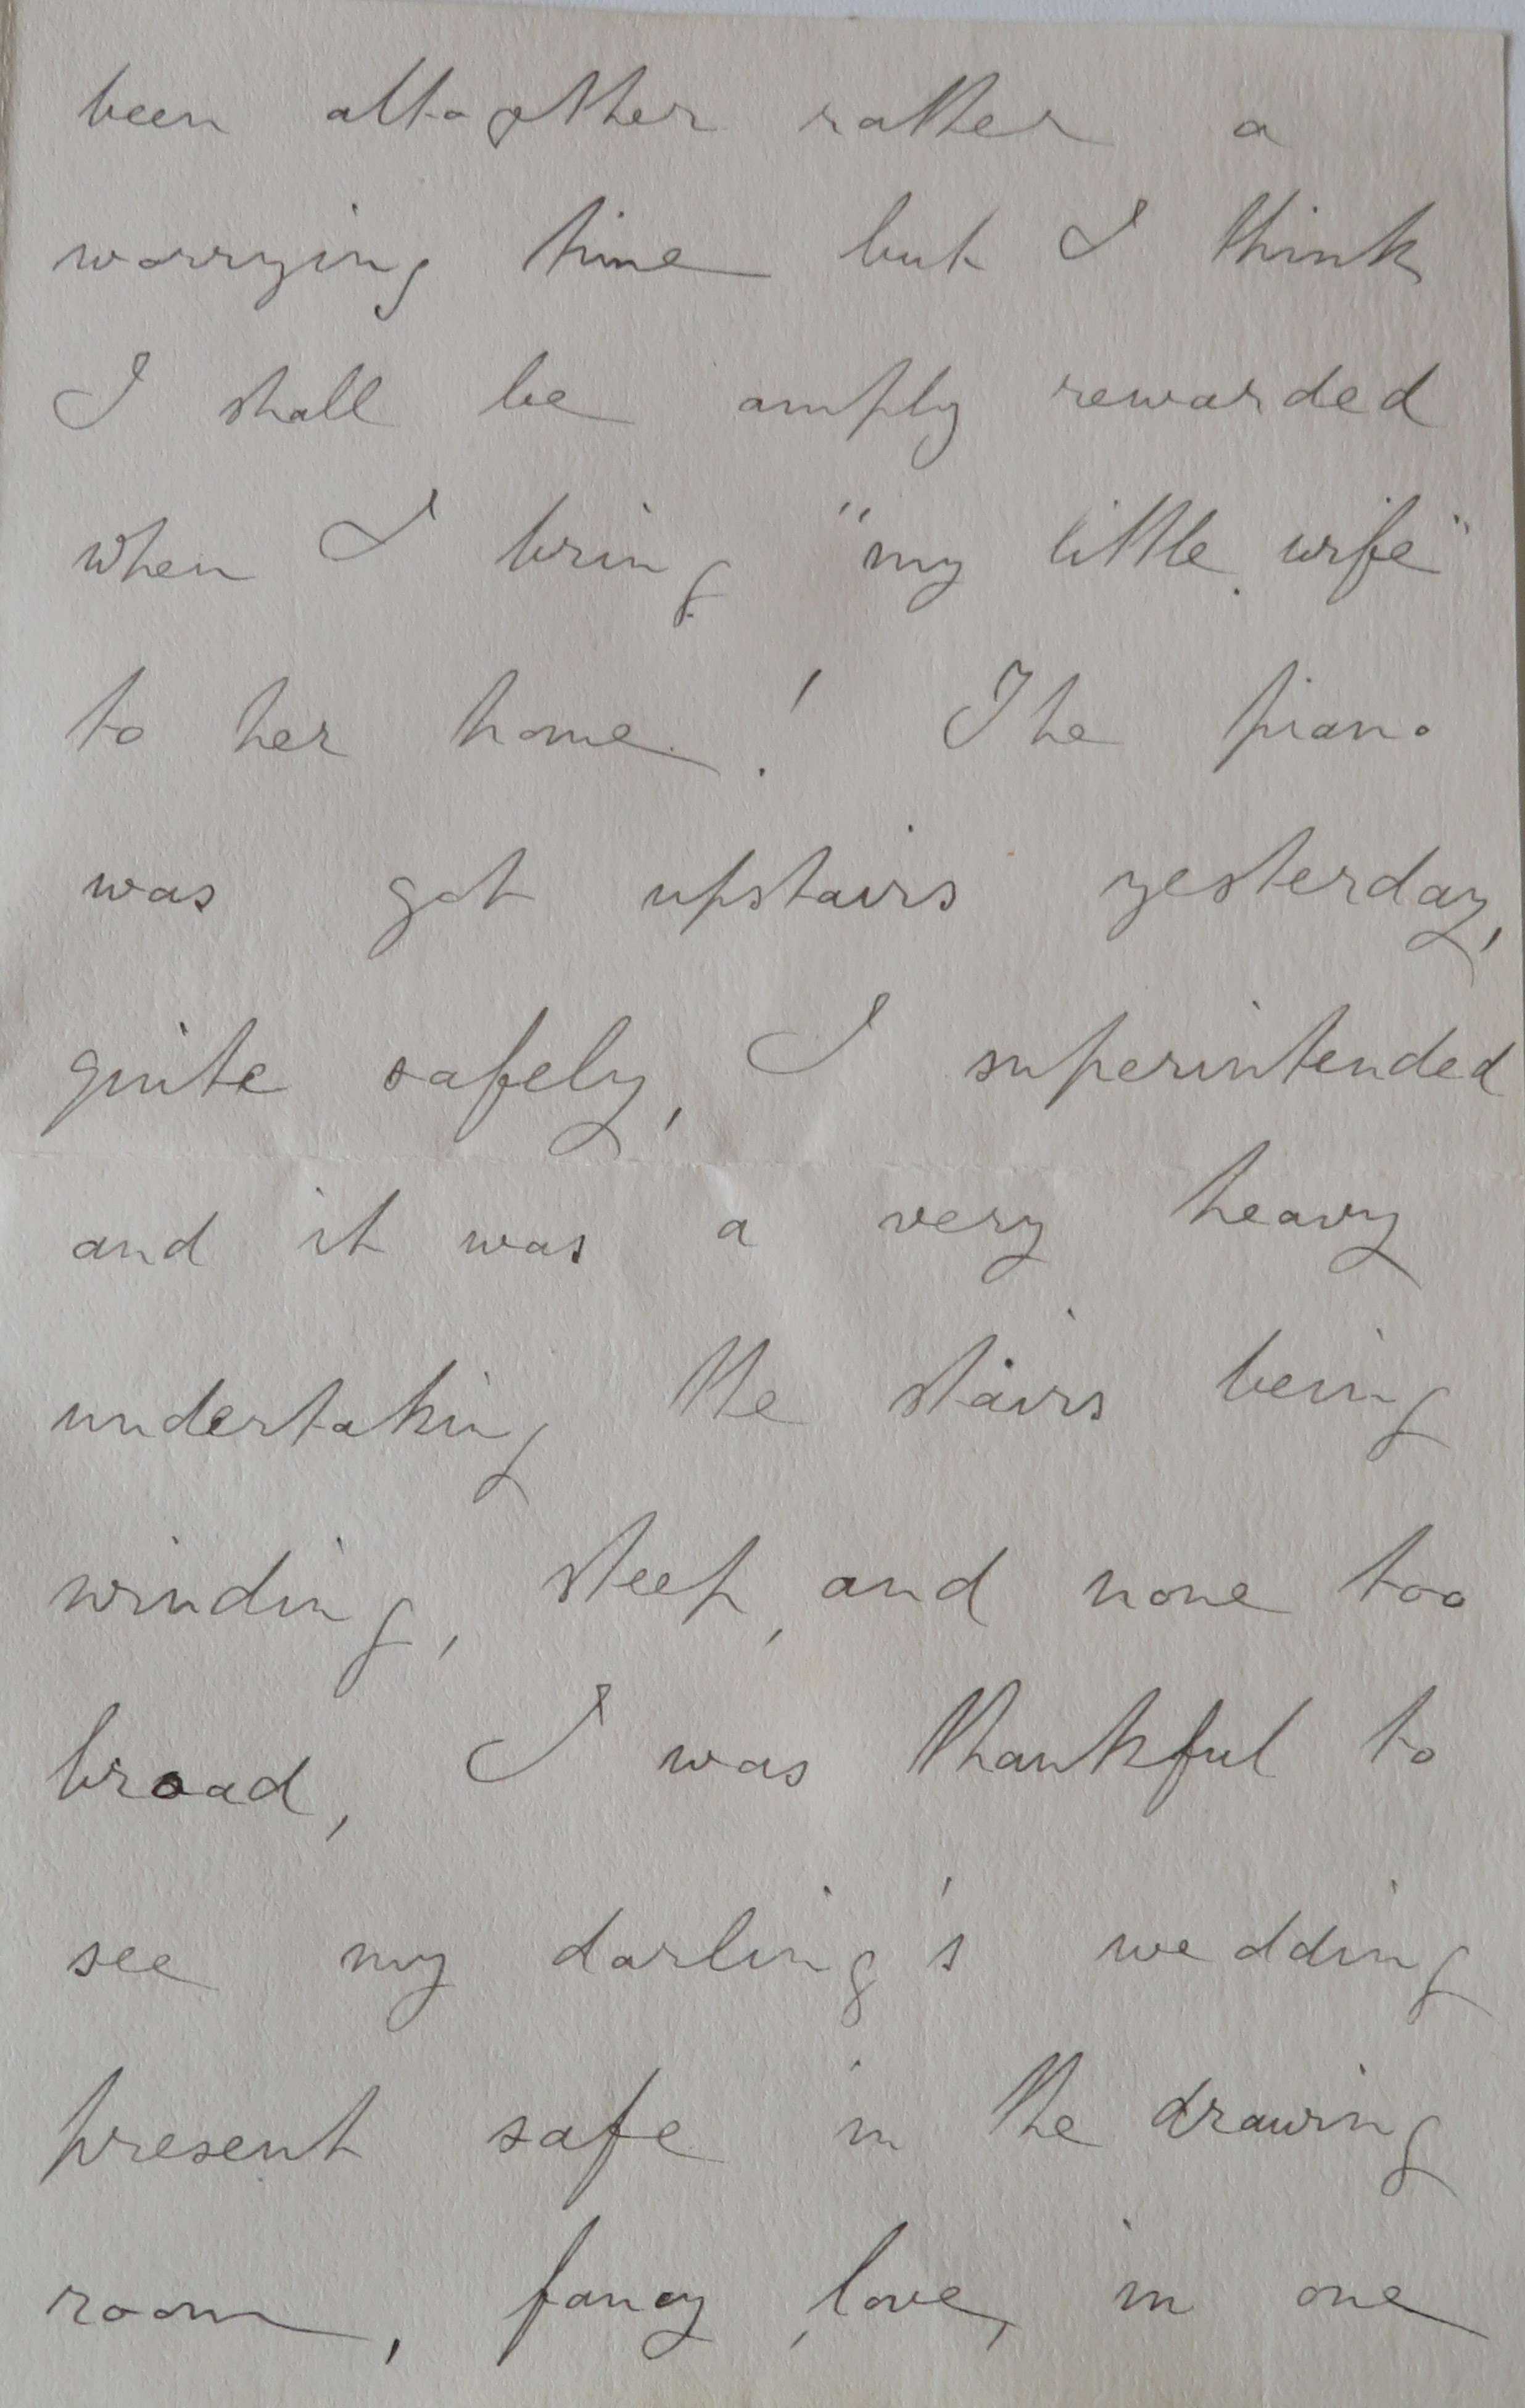 been altogether rather a
worrying time but I think
I shall be amply rewarded
when I bring "my little wife"
to her home! The piano
was got upstairs yesterday,
quite safely, I superintended
and it was a very heavy
undertaking the stairs being
winding, steep, and none too
broad, I was thankful to
see my darling's wedding
present safe in the drawing
room, fancy, love, in one